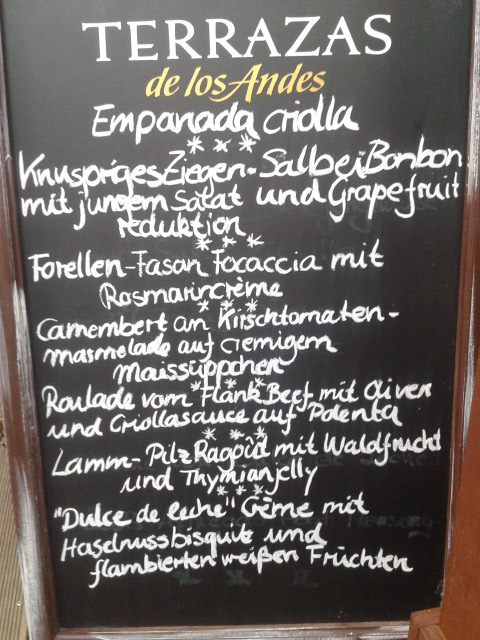 TERRAZAS
de los Andes
Empanada criolla
***
Knuspriges Ziegen-Salbei Bonbon
mit jungem Salat und Grapefruit
reduktion
***
Forellen-Fasan Focaccia mit
Rosmarincrème
***
Camembert an Kirschtomaten-
masmelade auf cremigem
Maissüppchen
***
Roulade vom Flank Beef mit Oliven
und Criollasauce auf Polenta
***
Lamm-Pilz Ragoût mit Waldfrucht
und Thymianjelly
***
"Dulce de leche" Crème mit
Haselnussbisquite und
flambierten weißen Früchten